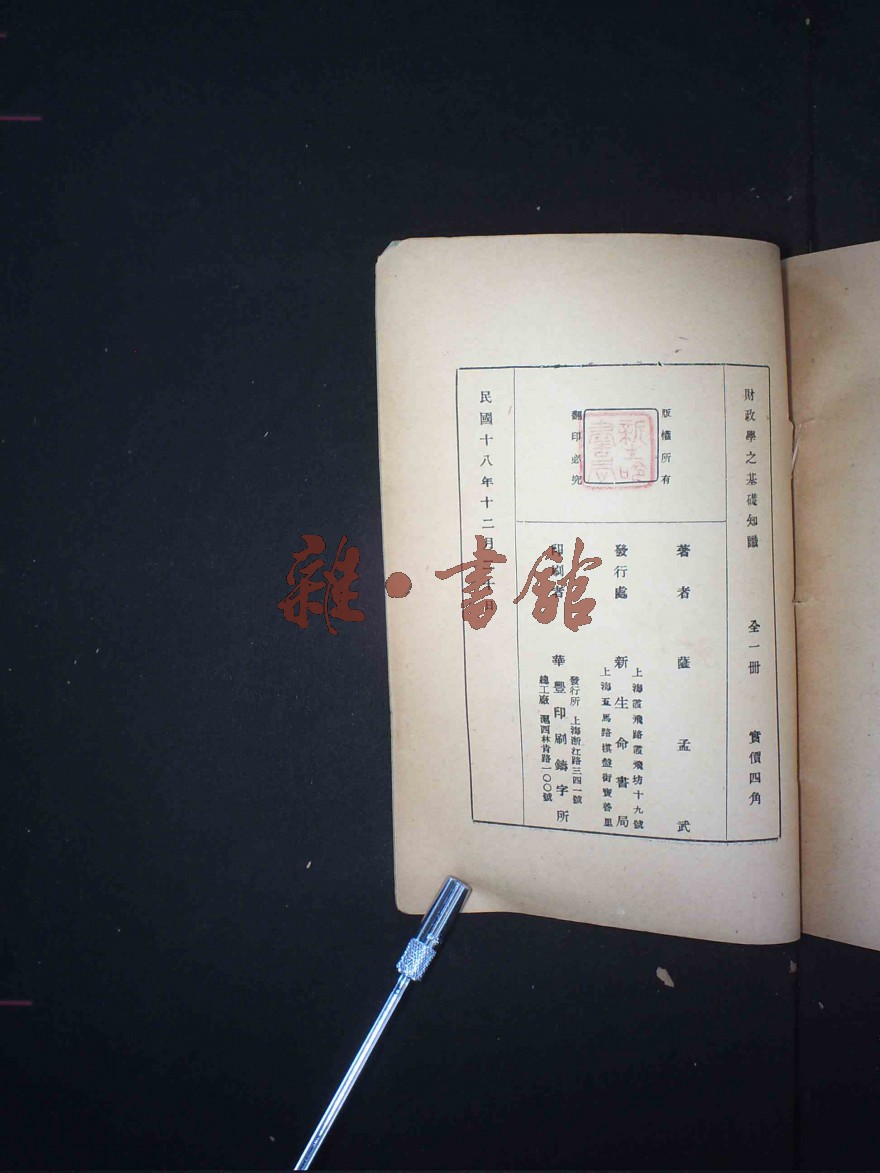 財政學之基礎知識 全一冊 實價四角
版權所有
新生命書局
翻印必究
著者 薩孟武
發行處 新生命書局
上海霞飛路霞飛坊十九號
上海五馬路棋盤街寶善里
印刷者 華豐印刷鑄字所
發行所 上海浙江路三四一號
總工廠 滬西林肯路一〇〇號
民國十八年十二月 十日
雜·書館